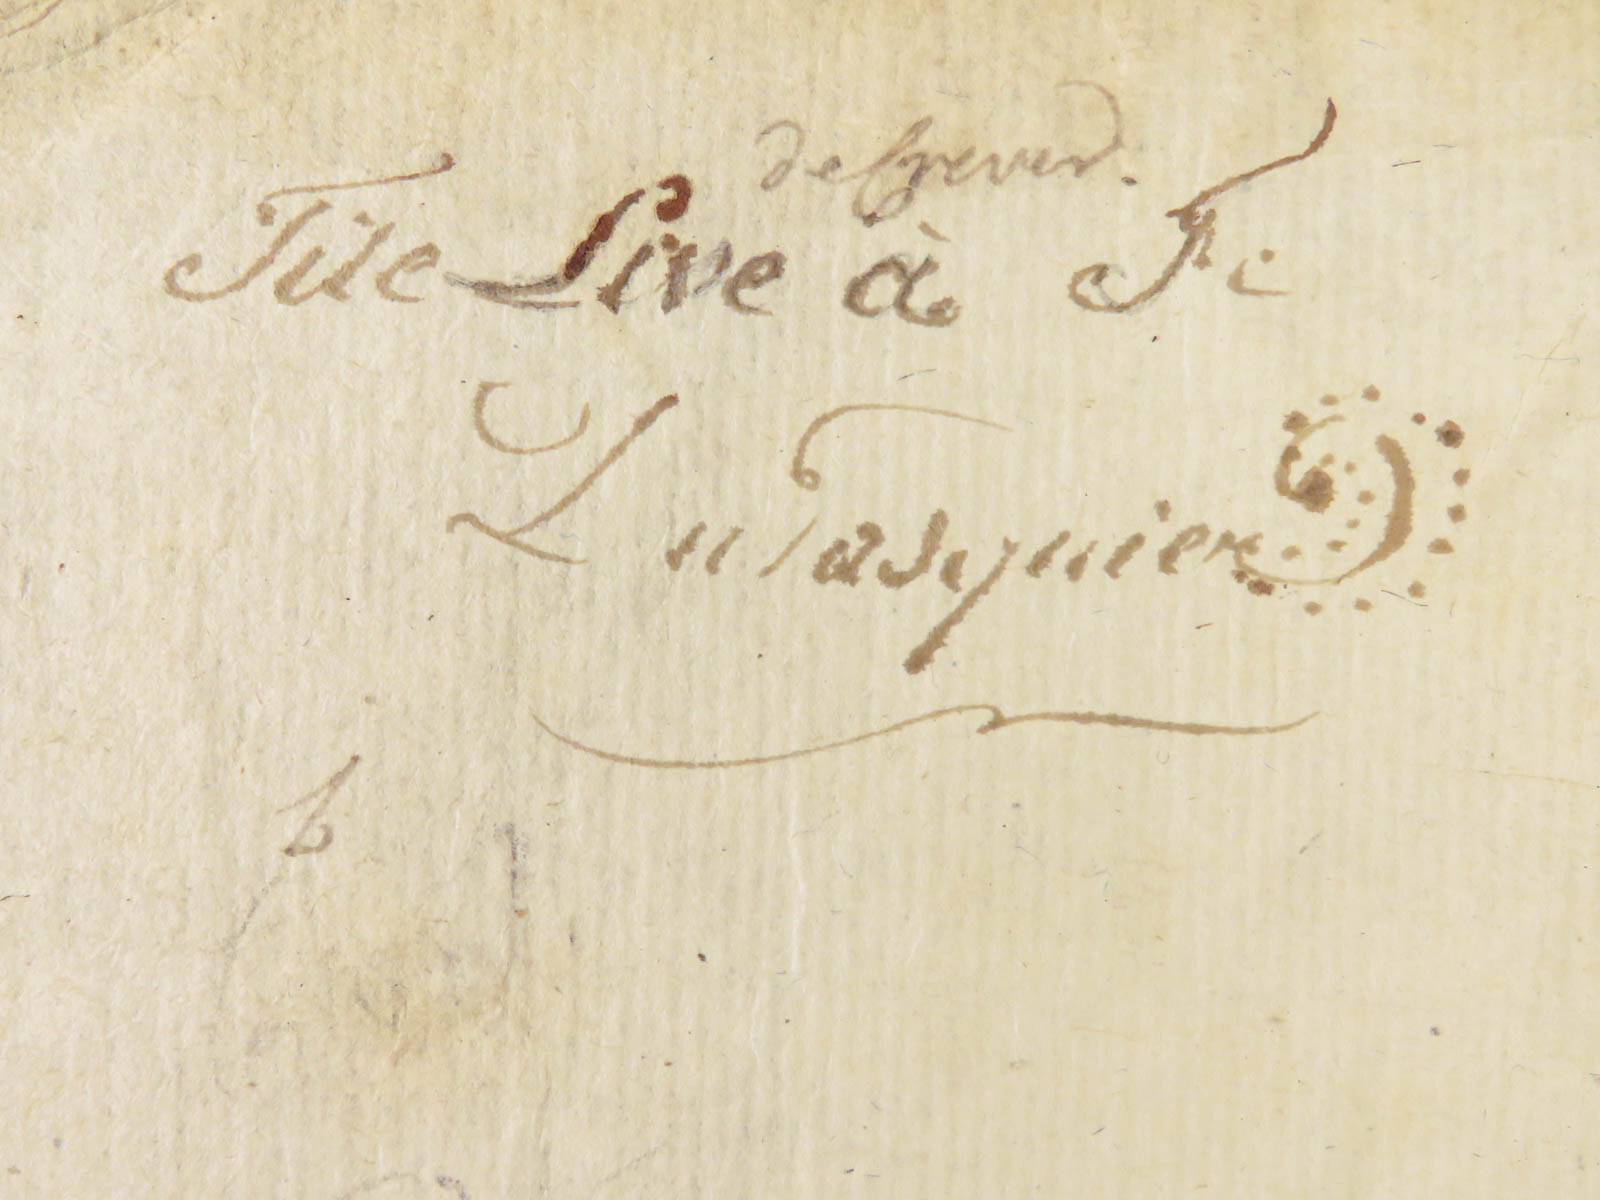 de Crevier.
Tite Live à Fc
LuPasquier
b